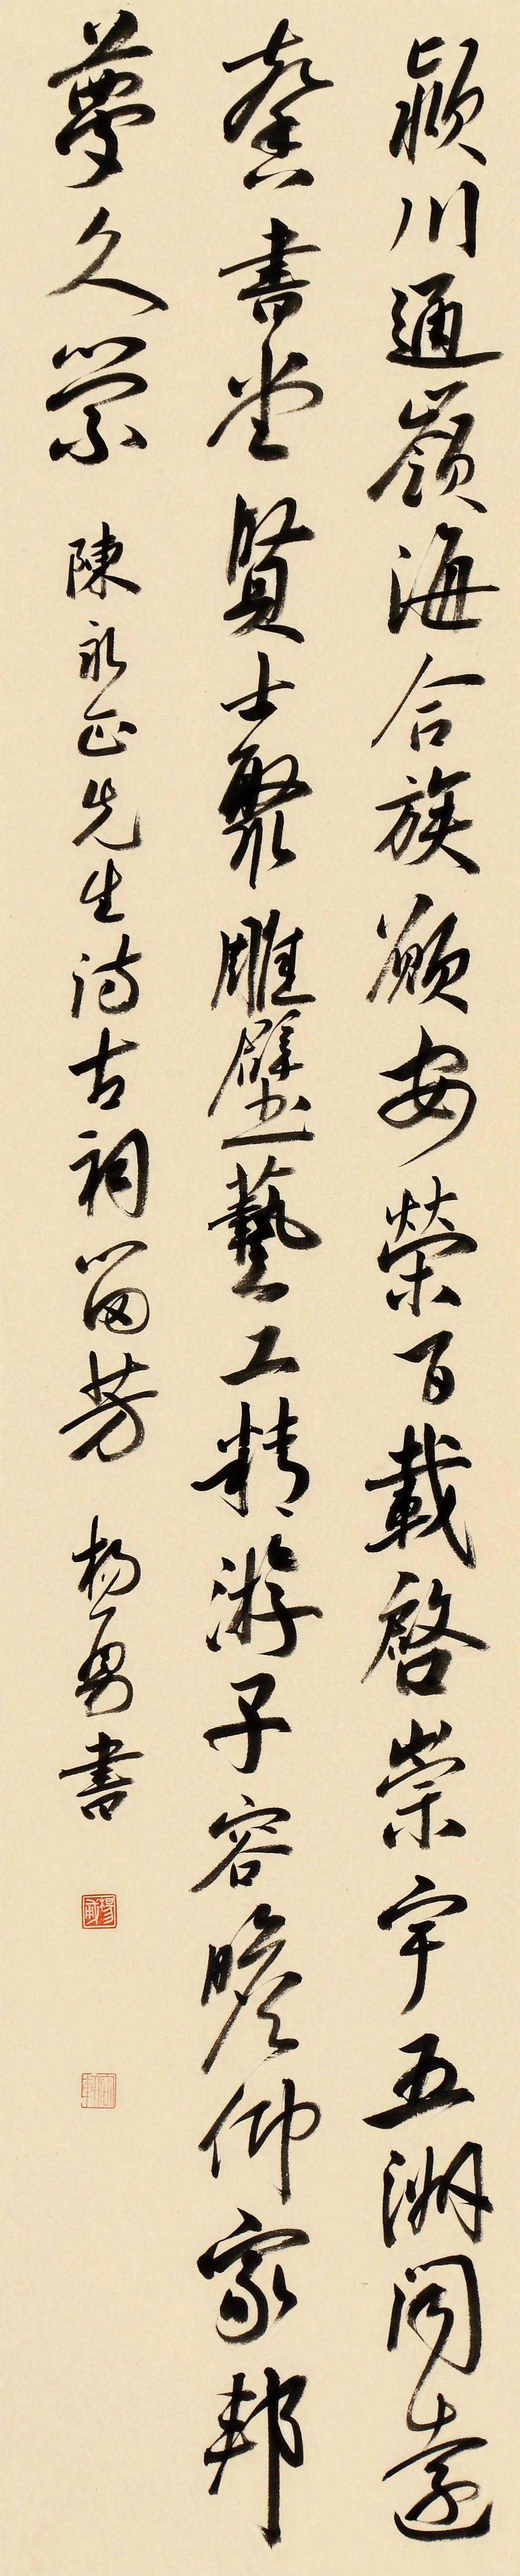 潁川通嶺海合族願安榮百載啓崇宇五洲聞遠
馨書堂賢士聚雕壁藝工精游子容瞻仰家邦
夢久縈 陳永正先生詩古祠留芳 楊勇書